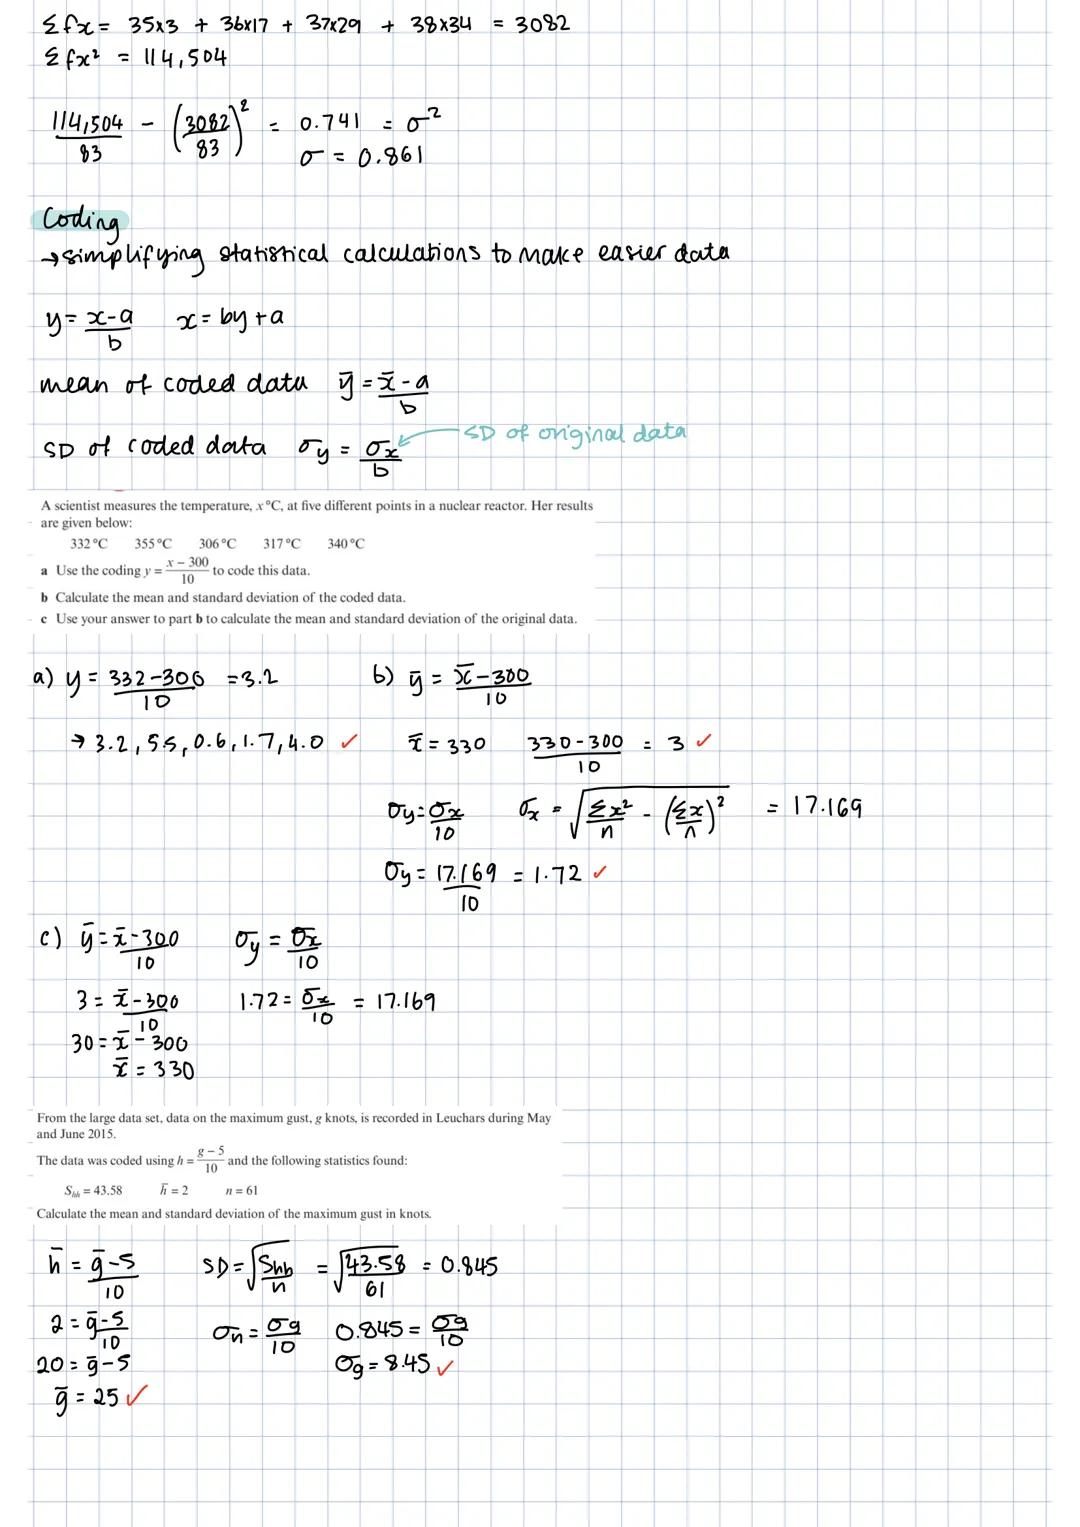 Σfx = 35x3 + 36x17 + 37x29 + 38x34 = 3082
Σfx² = 114,504
114,504/83 - (3082/83)² = 0.741 = σ²
σ = 0.861
Coding
→ simplifying statistical calculations to make easier data
y = (x-a)/b x = by + a
mean of coded data ȳ = (x̄ - a)/b
SD of coded data σy = σx/b ← SD of original data
A scientist measures the temperature, x °C, at five different points in a nuclear reactor. Her results
are given below:
332 °C 355 °C 306 °C 317 °C 340 °C
a Use the coding y = (x - 300)/10 to code this data.
b Calculate the mean and standard deviation of the coded data.
c Use your answer to part b to calculate the mean and standard deviation of the original data.
a) y = (332-300)/10 = 3.2
→ 3.2, 5.5, 0.6, 1.7, 4.0 ✓
b) ȳ = (x̄-300)/10
x̄ = 330 (330-300)/10 = 3 ✓
σy = σx/10 σx = √(Σx²/n - (Σx/n)²) = 17.169
σy = 17.169/10 = 1.72 ✓
c) ȳ = (x̄-300)/10 σy = σx/10
3 = (x̄-300)/10 1.72 = σx/10 = 17.169
30 = x̄ - 300
x̄ = 330
From the large data set, data on the maximum gust, g knots, is recorded in Leuchars during May
and June 2015.
The data was coded using h = (g - 5)/10 and the following statistics found:
Shh = 43.58 h̄ = 2 n = 61
Calculate the mean and standard deviation of the maximum gust in knots.
h̄ = (ḡ-5)/10 SD = √(Shh/n) = √(43.58/61) = 0.845
2 = (ḡ-5)/10 σh = σg/10 0.845 = σg/10
20 = ḡ-5 σg = 8.45 ✓
ḡ = 25 ✓